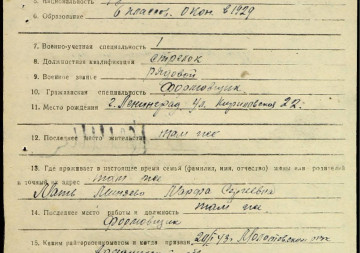 6. Образование 6 классов. Окон. в 1929
7. Военно-учетная специальность 1
8. Должностная квалификация стрелок
9. Военное звание рядовой
10. Гражданская специальность Формовщик
11. Место рождения г. Ленинград ул. 22.
12. Последнее место жительства там же
13. Где проживает в настоящее время семья (фамилия, имя, отчество) жены или родителей
и точный их адрес там же
Мать Марфа Сергеевна
14. Последнее место работы и должность там же
Формовщик
15. Каким райгорвоенкоматом и когда призван 43г. Молотовским